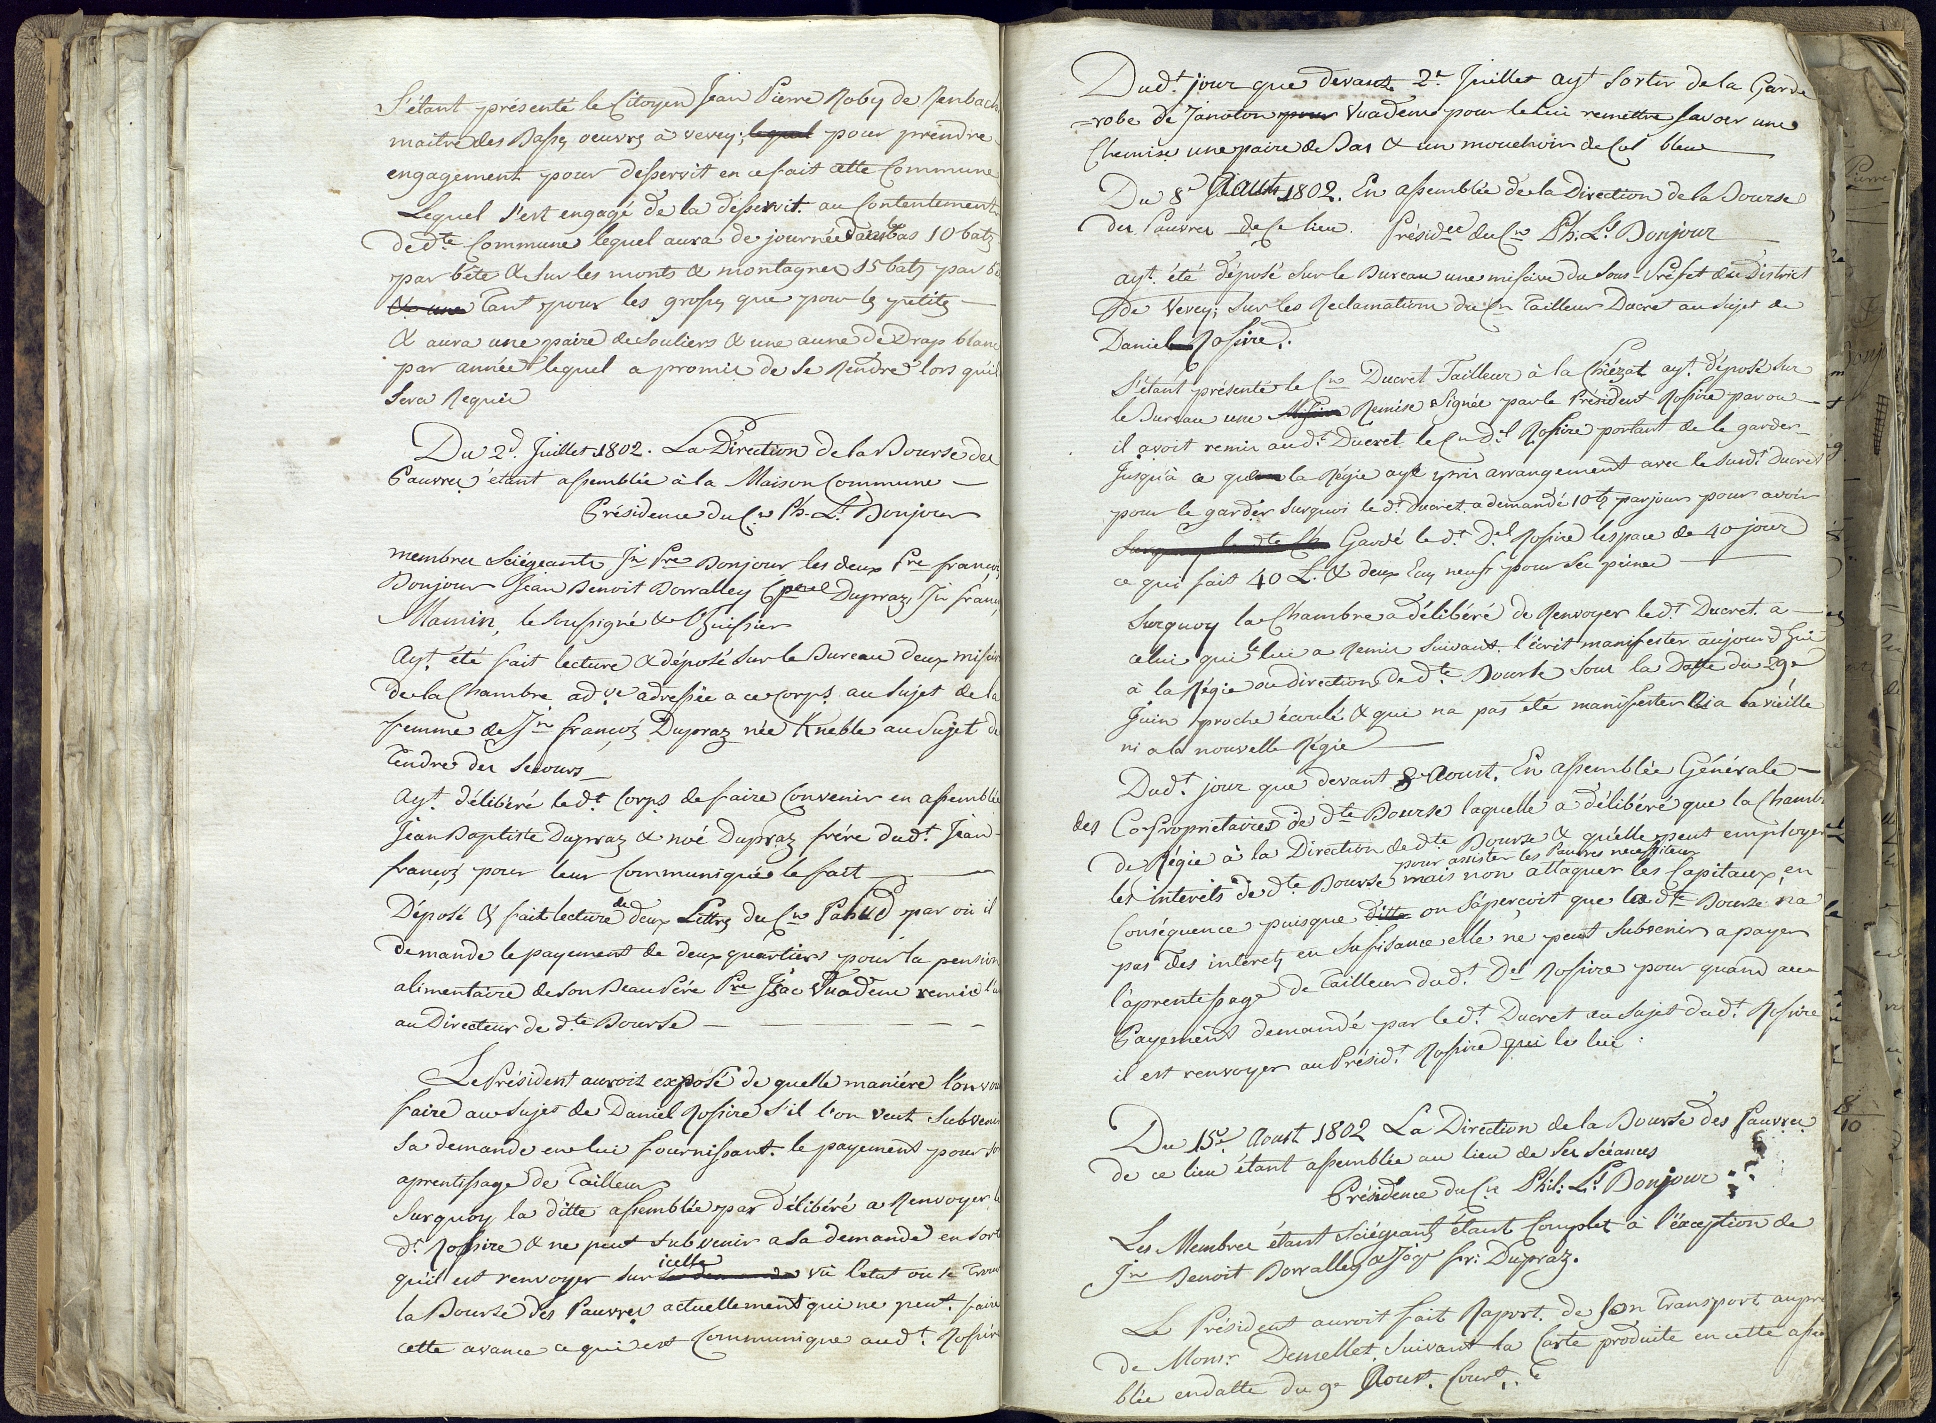 S'étant présenté le Citoyen Jean Pierre Roby de Renbach
maitre des Basses oeuvres à vevey; lequel pour prendre
engagement pour desservit en ce fait cette Commune
Lequel s'est engagé de la desservit. au Contentement
de dte Commune lequel aura de journée 10 batz
par bête & sur les monts & montagnes 15 batz par
& une tant pour les grosses que pour les petites
& aura une paire de souliers & une aune de Drap blanc
par année lequel a promis de se Rendre lors quil
Sera Requis
Du 2d. Juillet 1802. La Direction de la Bourse des
Pauvres s'étant assemblée à la Maison Commune
Présidence du Cn Ph. Ls. Bonjour
membres Sciégeants Jn Pre Bonjour les deux Pre françois
Bonjour Jean Benoit Borralley Dupraz, Jn franç
Mamin, le soussigné & l'Huissier
Ayt. été fait lecture & déposé sur le Bureau deux missive
de la Chambre adve adressée a ce Corps au sujet de la
femme de Jn françois Dupraz née Kneble au Sujet de
tendre des secours
Ayt. délibéré le dt. Corps de faire Convenir en assemblée
Jean Baptiste Dupraz & noé Dupraz frére dudt. Jean
françois pour leur Communiquée le fait
Déposé & fait lecture de deux Lettres du Cn Pahud par où il
demande le payement de deux quartiers pour la pension
alimentaire de son Beau Pére Pre Isac Vuadens remis
au Directeur de dte Bourse
Le Président auroit exposé de quelle maniére l'on
faire au sujet de Daniel Rossire s'il l'on veut subvenir
sa demande en lui fournissant. le payement pour son
aprentissage de Tailleur
Surquoy la ditte assemblée par délibéré a Renvoyer le
dt. Rossire & ne peut subvenir a sa demande en sorte
qu'il est renvoyer sur icelle sa demande vû l'etat où se trouve
la Bourse des Pauvres actuellement qui ne peut. faire
cette avance ce qui est Communique audt. Rossire
Dudt. jour que devant 2e Juillet ayt sortir de la Garde
=robe de Janoton pour Vuadens pour le lui remettre savoir une
Chemise une paire de Bas & un mouchoir de Col bleu
Du 8e Aoust 1802. En assemblée de la Direction de la Bourse
des Pauvres de Ce lieu. Présidce du Cn Ph. Ls Bonjour
ayt. été déposé sur le Bureau une missive du Sous-Préfet du District
de Vevey; sur les Reclamations du Cn Tailleur Ducret au sujet de
Daniel Rossire.
S'étant présenté le Cn Ducret Tailleur à la Chiézaz ayt. déposé sur
le Bureau une Missive Remise Signée par le Président Rossire par ou
il avoit remis audt. Ducret le Cn Dl Rossire portant de le garder
jusqu'à ce que la Régie ayt pris arrangement avec le susdt. Ducret
pour le garder surquoi le dt. Ducret a demandé 10 bz par jour pour avoir
Gardé le dt. Del Rossire lespace de 40 jour
ce qui fait 40 L. & deux Ecus neufs pour ses peines
Surquoy la Chambre a délibéré de Renvoyer le dt. Ducret. a
celui qui le lui a Remis suivant. l'écrit manifester aujourd'hui
à la Régie ou direction de dte Bourse sous la Datte du 29e
Juin proche écoulé & qui na pas été manifester ni a la vieille
ni a la nouvelle Régie
Dudt. jour que devant 8e Aoust. En assemblée Générale
des Co-Propriétaires de dte Bourse laquelle a délibéré que la Chambre
de Régie à la Direction de dte Bourse & qu'elle peut employer
pour assister les Pauvres necessiteux
les interêts de dte Bourse mais non attaquer les Capitaux, en
Conséquence puisque ditte on s'aperçoit que la dte Bourse na
pas des interets en sufisance elle ne peut subvenir a payer
l'aprentissage de Tailleur dudt. Del Rossire pour quand au
Payement demandé par le dt. Ducret au sujet dudt. Rossire
il est renvoyer au Présidt. Rossire qui les lui
Du 15e Aoust 1802 La Direction de la Bourse des Pauvres
de ce lieu étant assemblée au lieu de ses séances
Présidence du Cn Phil: Ls. Bonjour
Les Membres étant Sciégeants étant Complet à l'éxception de
Jn Benoit Borralley & Jâqe fr: Dupraz.
Le Président auroit fait Raport. de son Transport aupre
de Monsr. Demellet. suivant la Carte produite en cette assem
blée en datte du 9e Aoust. Court.